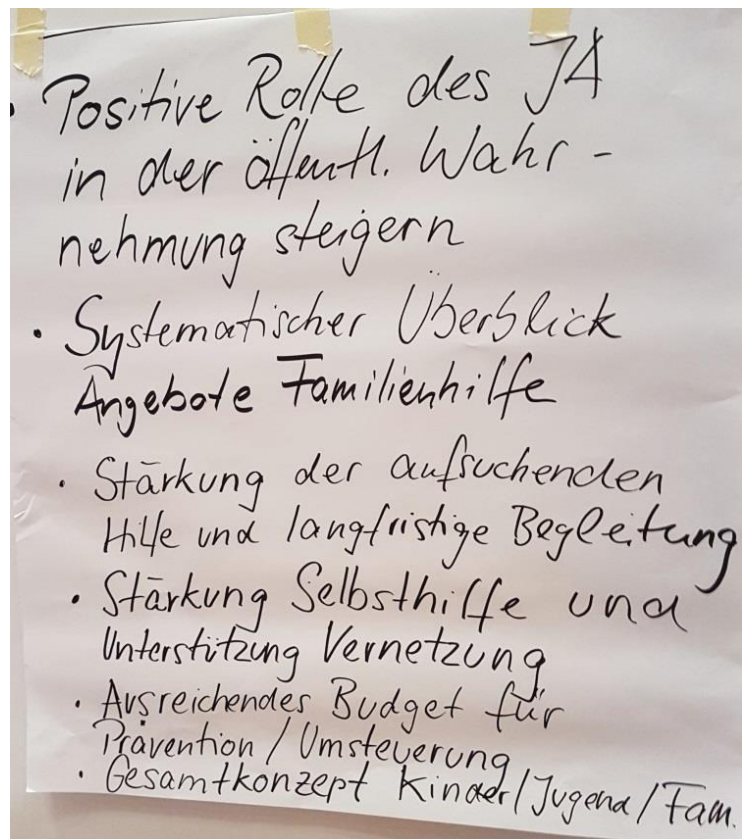 • Positive Rolle des JA
in der öffentl. Wahr-
nehmung steigern
• Systematischer Überblick
Angebote Familienhilfe
• Stärkung der aufsuchenden
Hilfe und langfristige Begleitung
• Stärkung Selbsthilfe und
Unterstützung Vernetzung
• Ausreichendes Budget für
Prävention / Umsteuerung
• Gesamtkonzept Kinder/Jugend/Fam.